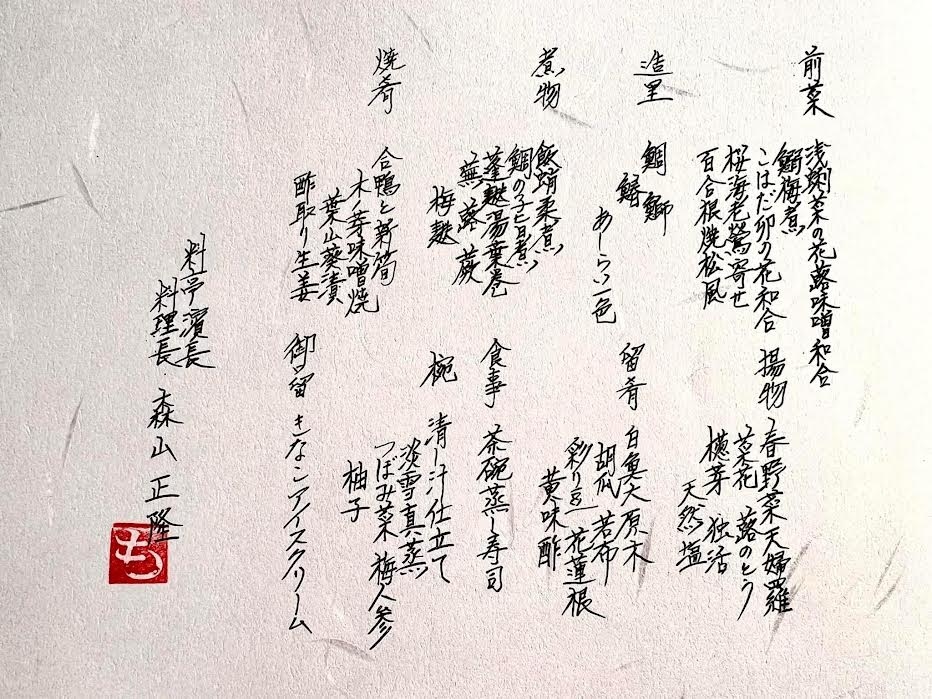 前菜
浅蜊菜の花蕗味噌和合
鰯梅煮
こはだ卯の花和合
桜海老鶯寄せ
百合根焼松風
造里
鯛 鰤
鱚
あしらい一色
煮物
飯蛸柔煮
鯛の子旨煮
蓬麩湯葉巻
蕪 蕗 蕨
梅麩
焼肴
合鴨と新筍
木ノ芽味噌焼
葉山葵漬
酢取り生姜
揚物
春野菜天婦羅
菜花 蕗のとう
楤芽 独活
天然塩
留肴
白魚大原木
胡瓜 若布
彩り豆 花蓮根
黄味酢
食事
茶碗蒸し寿司
椀
清し汁仕立て
淡雪真蒸
つぼみ菜 梅人参
柚子
御留
きなこアイスクリーム
料亭濱長
料理長 森山正隆
も